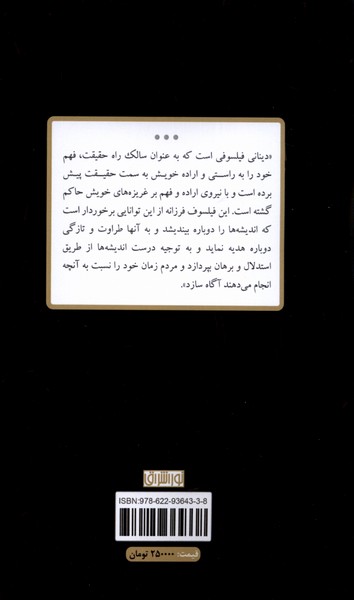 «دینانی فیلسوفی است که به عنوان سالک راه حقیقت، فهم
خود را به راستی و اراده خویش به سمت حقیقت پیش
برده است و با نیروی اراده و فهم بر غریزه‌های خویش حاکم
گشته است. این فیلسوف فرزانه از این توانایی برخوردار است
که اندیشه‌ها را دوباره بیندیشد و به آنها طراوت و تازگی
دوباره هدیه نماید و به توجیه درست اندیشه‌ها از طریق
استدلال و برهان بپردازد و مردم زمان خود را نسبت به آنچه
انجام می‌دهند آگاه سازد».
نور اشراق
ISBN:978-622-93643-3-8
قیمت: ۲۵۰۰۰۰ تومان